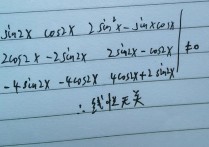 sin2x cos2x 2sin²x-sinxcosx
2cos2x -2sin2x 2sin2x-cos2x ≠0
-4sin2x -4cos2x 4cos2x+2sin2x
∴线性无关